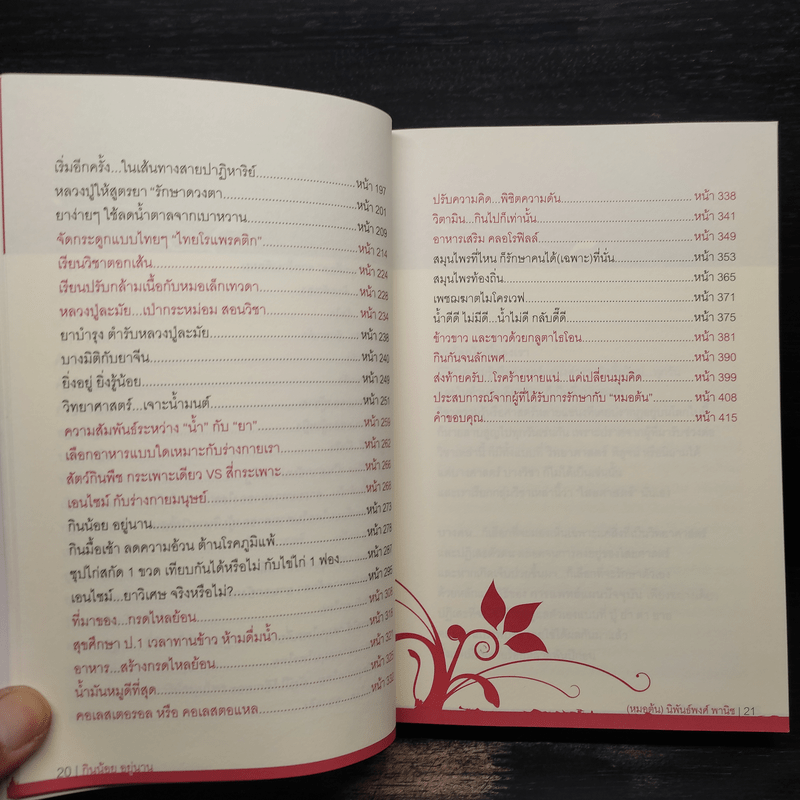 เริ่มอีกครั้ง...ในเส้นทางสายปาฏิหาริย์......หน้า 197
หลวงปู่ให้สูตรยา "รักษาดวงตา......หน้า 201
ยาง่ายๆ ใช้ลดน้ำตาลจากเบาหวาน......หน้า 209
จัดกระดูกแบบไทยๆ "ไทยโรแพรคติก"......หน้า 214
เรียนวิชาตอกเส้น......หน้า 224
เรียนปรับกล้ามเนื้อกับหมอเล็กเทวดา......หน้า 228
หลวงปู่ละมัย...เป่ากระหม่อม สอนวิชา......หน้า 234
ยาบำรุง ตำรับหลวงปู่ละมัย......หน้า 238
บางมิติกับยาจีน......หน้า 240
ยิ่งอยู่ ยิ่งรู้น้อย......หน้า 249
วิทยาศาสตร์...เจาะน้ำมนต์......หน้า 251
ความสัมพันธ์ระหว่าง "น้ำ" กับ "ยา"......หน้า 259
เลือกอาหารแบบใดเหมาะกับร่างกายเรา......หน้า 262
สัตว์กินพืช กระเพาะเดียว VS สี่กระเพาะ......หน้า 266
เอนไซม์ กับร่างกายมนุษย์......หน้า 268
กินน้อย อยู่นาน......หน้า 273
กินมื้อเช้า ลดความอ้วน ต้านโรคภูมิแพ้......หน้า 278
ซุปไก่สกัด 1 ขวด เทียบกันได้หรือไม่ กับไข่ไก่ 1 ฟอง......หน้า 287
เอนไซม์...ยาวิเศษ จริงหรือไม่?......หน้า 295
ที่มาของ...กรดไหลย้อน......หน้า
สุขศึกษา ป.1 เวลาทานข้าว ห้ามดื่มน้ำ......หน้า
อาหาร...สร้างกรดไหลย้อน......หน้า
น้ำมันหมูดีที่สุด......หน้า
คอเลสเตอรอล หรือ คอเลสตอแหล......หน้า
20 | กินน้อย อยู่นาน
ปรับความคิด...พิชิตความดัน......หน้า 338
วิตามิน...กินไปก็เท่านั้น......หน้า 341
อาหารเสริม คลอโรฟิลล์......หน้า 349
สมุนไพรที่ไหน ก็รักษาคนได้(เฉพาะ)ที่นั่น......หน้า 353
สมุนไพรท้องถิ่น......หน้า 365
เพชฌฆาตไมโครเวฟ......หน้า 371
น้ำดีดี ไม่มีดี...น้ำไม่ดี กลับดี๊ดี......หน้า 375
ข้าวขาว และขาวด้วยกลูตาไธโอน......หน้า 381
กินกันจนลักเพศ......หน้า 390
ส่งท้ายครับ...โรคร้ายหายแน่...แค่เปลี่ยนมุมคิด......หน้า 399
ประสบการณ์จากผู้ที่ได้รับการรักษากับ "หมอต้น"......หน้า 408
คำขอบคุณ......หน้า 415
(หมอต้น) นิพันธ์พงศ์ พานิช | 21